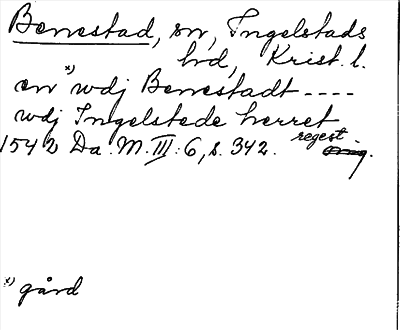 Benestad, sn, Ingelstads
hd, Krist. l.
en *) wdj Benestadt ----
wdj Ingelstede herret
1542 Da. M. III: 6, s. 342. regest
*) gård